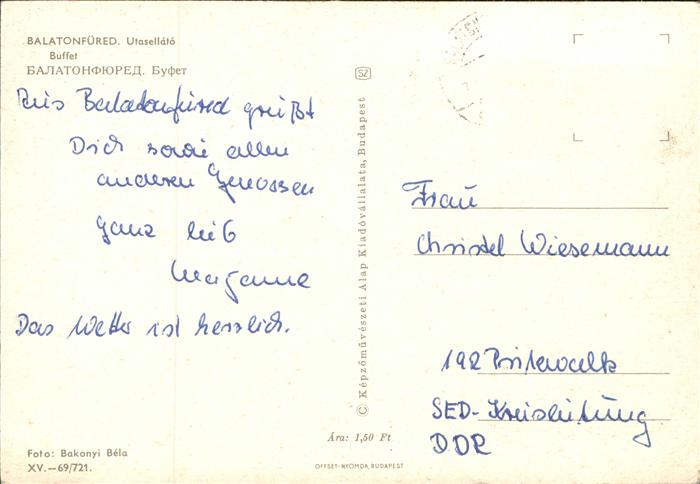 BALATONFÜRED. Utasellátó
Buffet
БАЛАТОНФЮРЕД. Буфет
Aus Balatonfüred grüßt
Dich sowie allen
anderen Genossen
ganz lieb
Marianne
Das Wetter ist herrlich.
Foto: Bakonyi Béla
XV.—69/721.
SZ
© Képzőművészeti Alap Kiadóvállalata, Budapest
Ára: 1,50 Ft
OFFSET-NYOMDA, BUDAPEST
Frau
Christel Wiesemann
192 Pritzwalk
SED-Kreisleitung
DDR